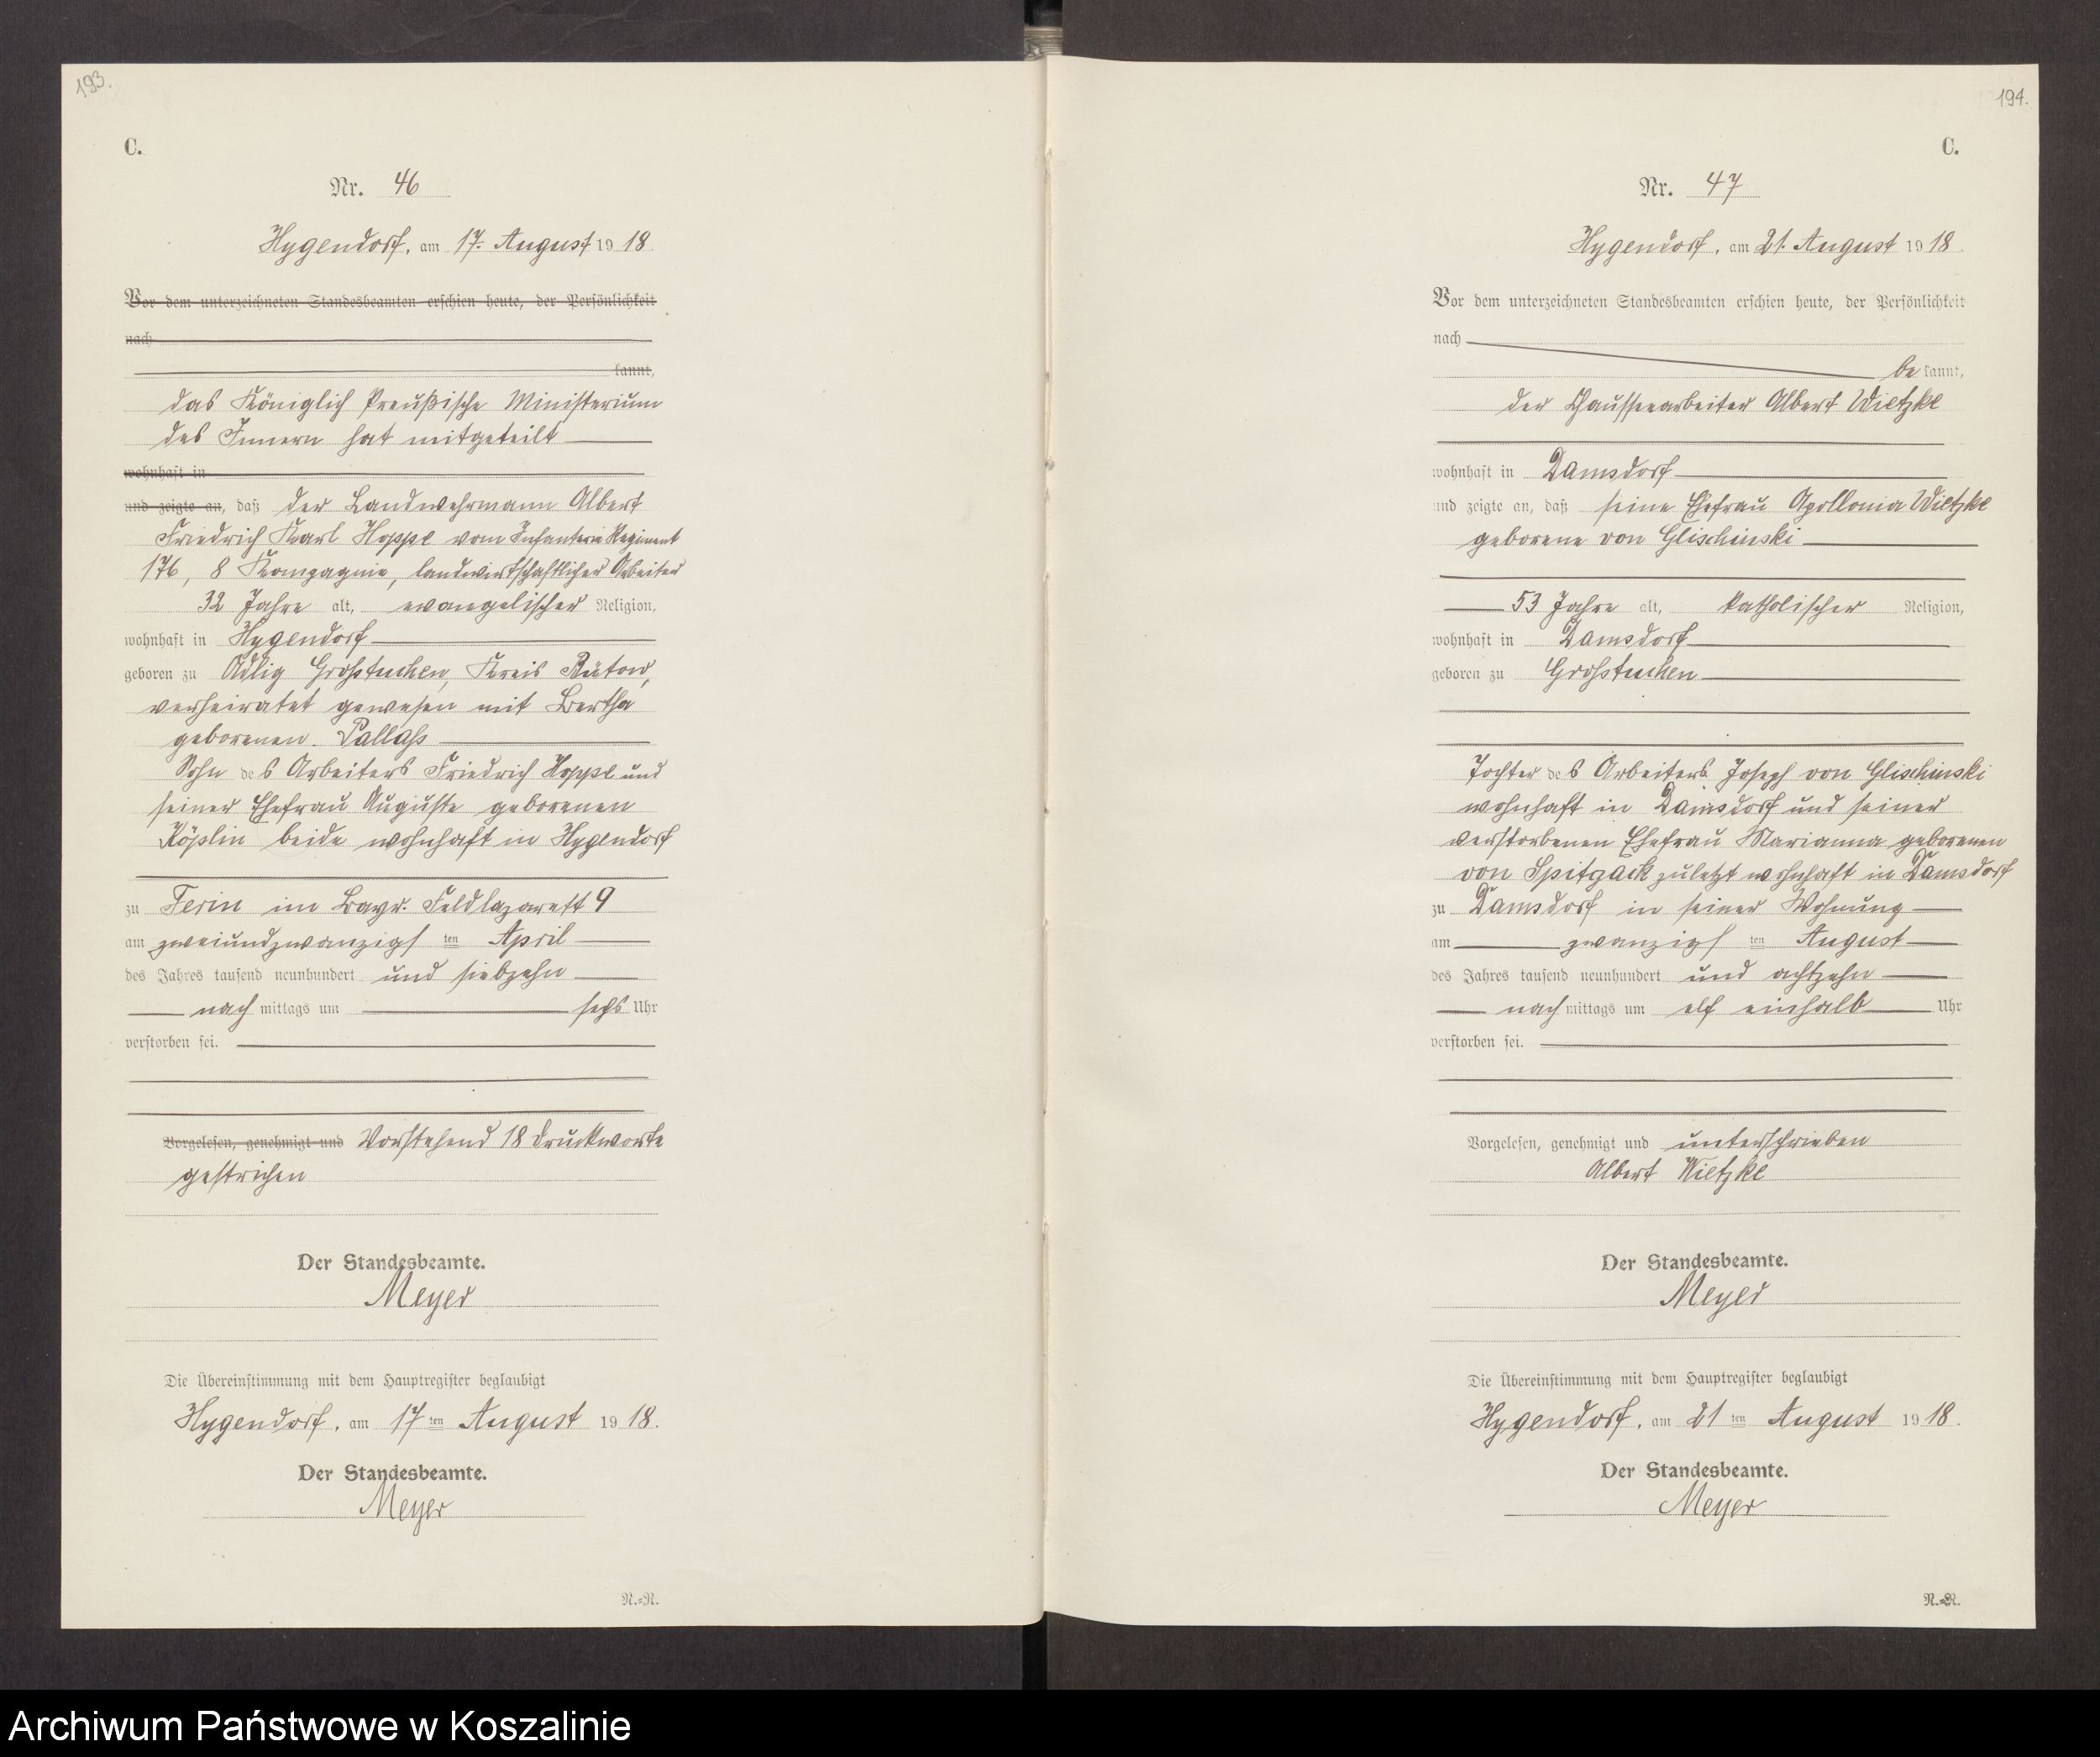 193.
C.
Nr. 46
Hygendorf, am 17. August 19 18
Vor dem unterzeichneten Standesbeamten erschien heute, der Persönlichkeit
nach
kannt,
das Königlich Preußische Ministerium
des Innern hat mitgeteilt
wohnhaft in
und zeigte an, daß der Landwehrmann Albert
Friedrich Karl Hoppe vom Infanterie Regiment
176, 8 Kompagnie, landwirtschaftlicher Arbeiter
32 Jahre alt, evangelischer Religion,
wohnhaft in Hygendorf
geboren zu Adlig Großtuchen, Kreis Bütow,
verheiratet gewesen mit Bertha
geborenen Pallaß
Sohn des Arbeiters Friedrich Hoppe und
seiner Ehefrau Auguste geborenen
Köplin beide wohnhaft in Hygendorf
zu Ferin im Bayr. Feldlazarett 9
am zweiundzwanzigsten April
des Jahres tausend neunhundert und siebzehn
nach mittags um sechs Uhr
verstorben sei.
Vorgelesen, genehmigt und Vorstehend 18 Druckworte
gestrichen
Der Standesbeamte.
Meyer
Die Übereinstimmung mit dem Hauptregister beglaubigt
Hygendorf, am 17 ten August 19 18.
Der Standesbeamte.
Meyer
N.=R.
194.
C.
Nr. 47
Hygendorf, am 21. August 19 18
Vor dem unterzeichneten Standesbeamten erschien heute, der Persönlichkeit
nach
be kannt,
der Chausseearbeiter Albert Wietzke
wohnhaft in Damsdorf
und zeigte an, daß seine Ehefrau Apollonia Wietzke
geborene von Glischinski
53 Jahre alt, katholischer Religion,
wohnhaft in Damsdorf
geboren zu Großtuchen
Tochter des Arbeiters Joseph von Glischinski
wohnhaft in Damsdorf und seiner
verstorbenen Ehefrau Marianna geborenen
von Spitzack zuletzt wohnhaft in Damsdorf
zu Damsdorf in seiner Wohnung
am zwanzigsten August
des Jahres tausend neunhundert und achtzehn
nach mittags um elf einhalb Uhr
verstorben sei.
Vorgelesen, genehmigt und unterschrieben
Albert Wietzke
Der Standesbeamte.
Meyer
Die Übereinstimmung mit dem Hauptregister beglaubigt
Hygendorf, am 21 ten August 19 18.
Der Standesbeamte.
Meyer
N.=R.
Archiwum Państwowe w Koszalinie